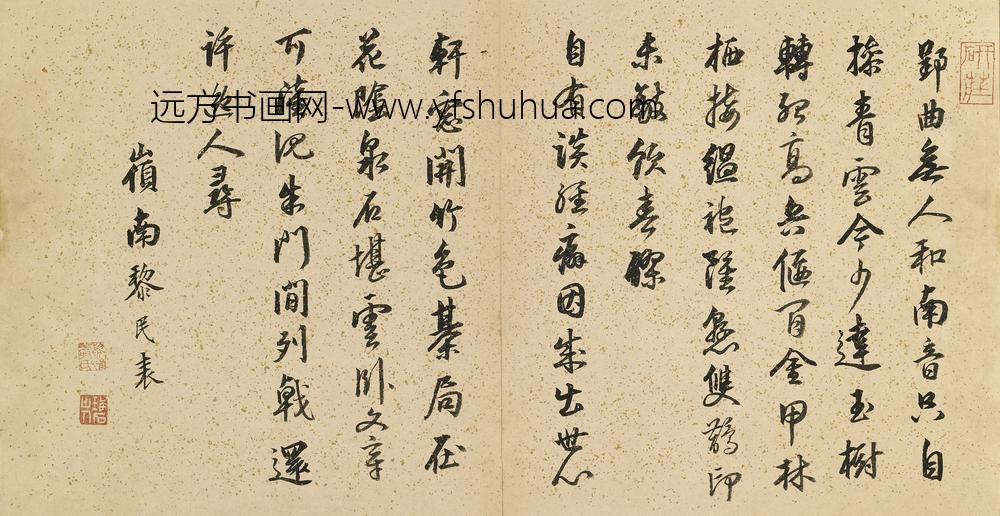 郢曲無人和南音只自
操青雲今少達玉樹
轉孤高共偃百金甲林
栖接縕袍雙鵲印
未飲春醪
自談經因成出世心
軒窓開竹色棊局在
花陰泉石堪雲臥文章
可沉朱門間列戟還
許人尋
嶺南黎民表
远方书画网-www.yfshuhua.com